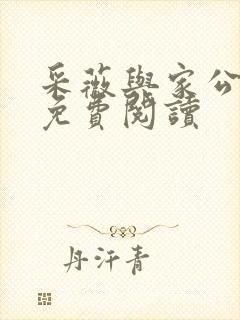 采薇與家公
免費閱讀
丹汗青